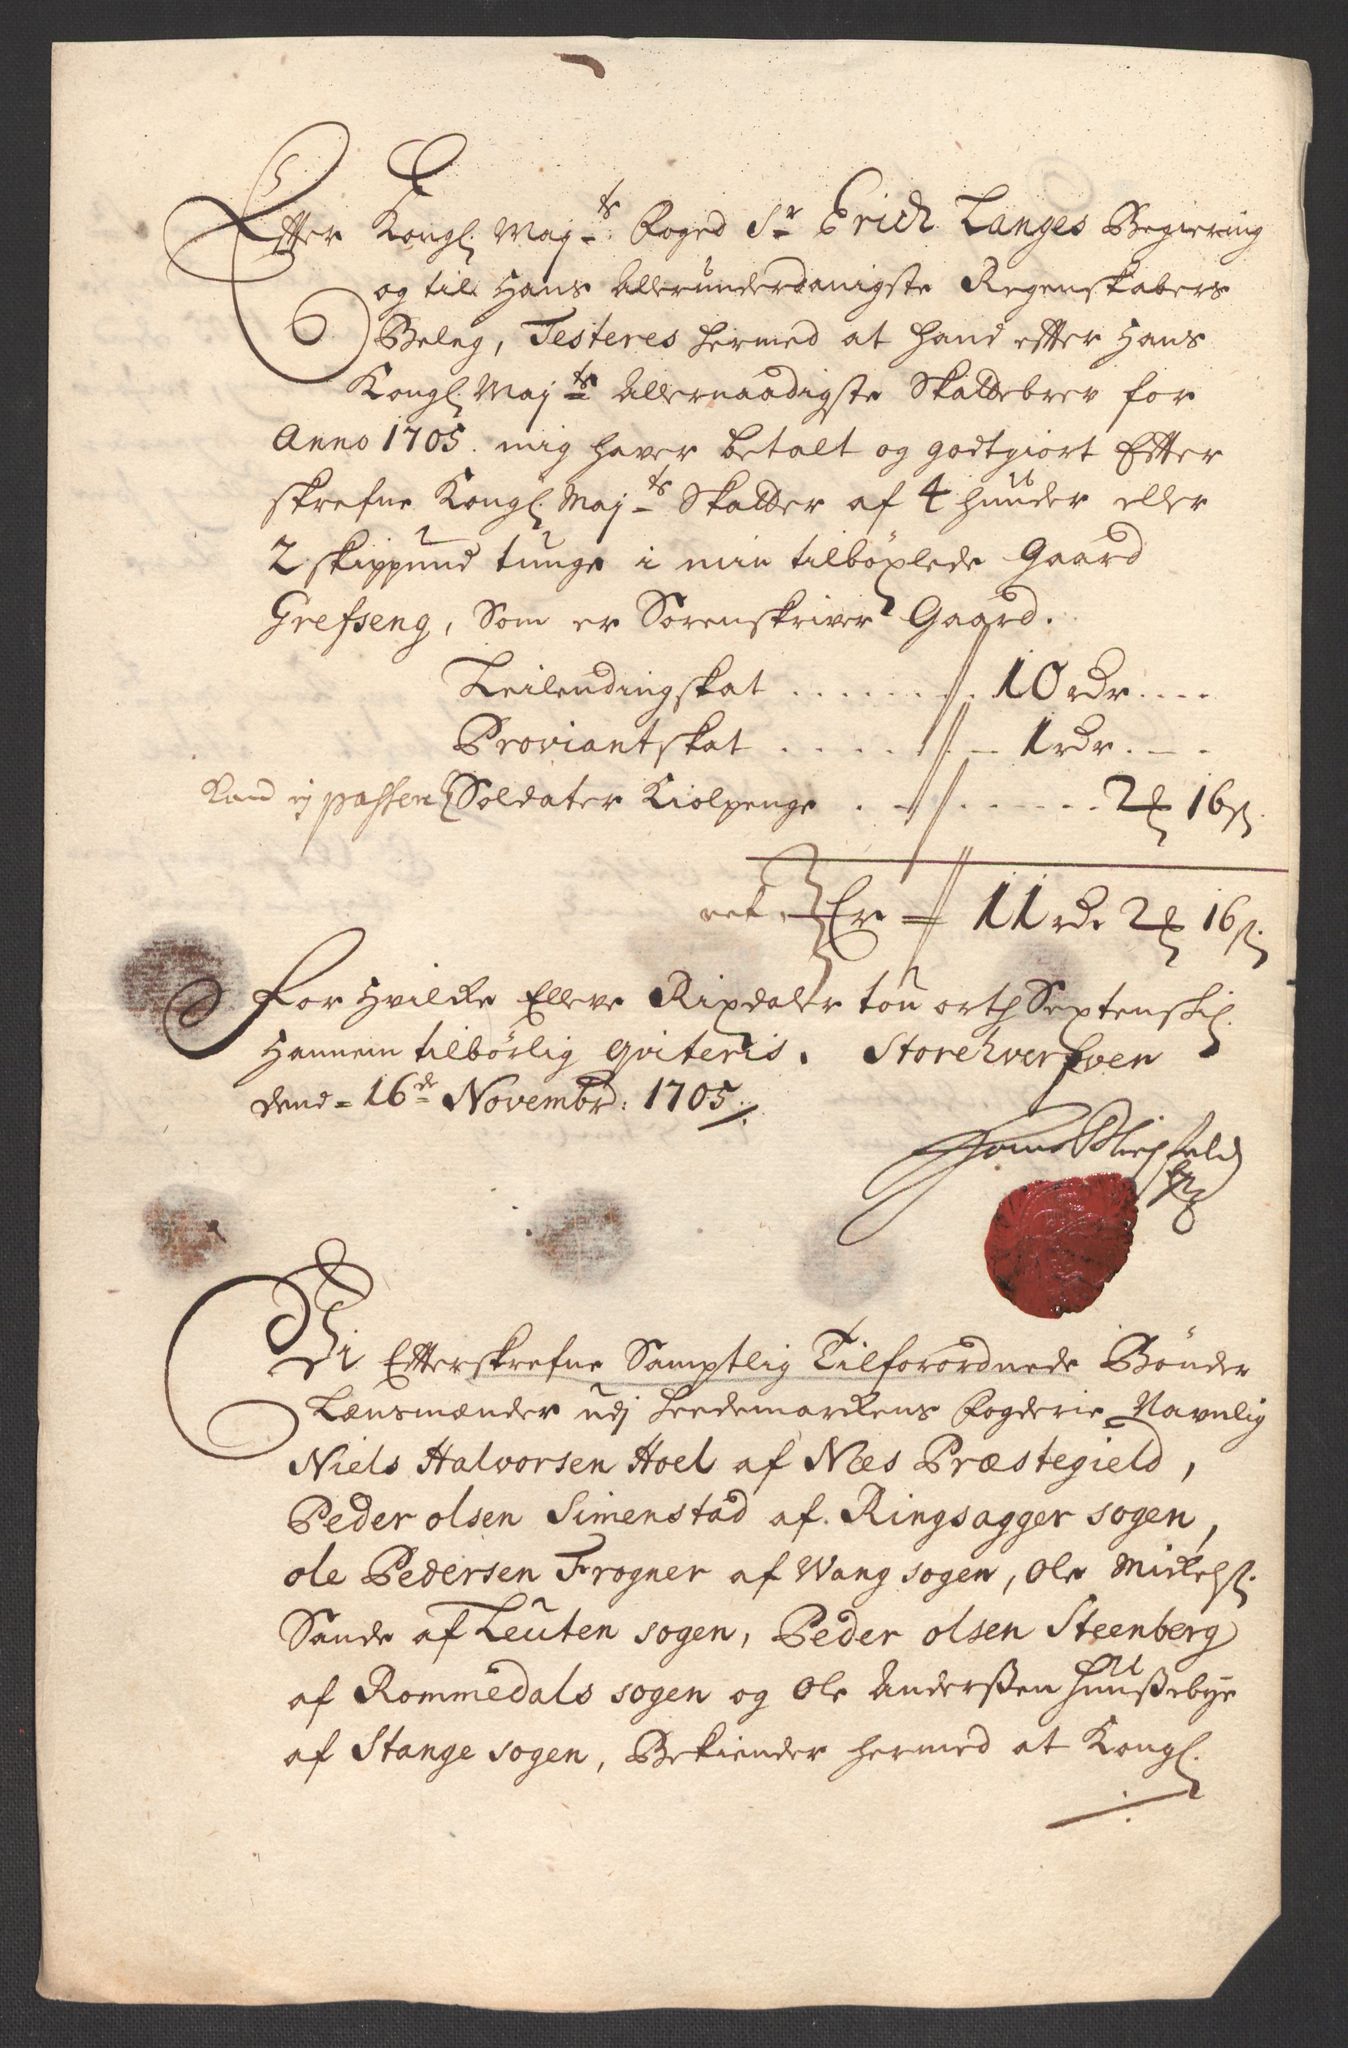 Effter Kongl. May:ts Foged Sr Erich Langes Begiering
og til Hans Allerunderdanigste Regenskabers
Belæg, Testeres hermed at hand effter Hans
Kongl. May:ts Allernaadigste Skattebrev for
Anno 1705. mig haver betalt og godtgiort Effter
skrefne Kongl. May:ts Skatter af 4 huuder eller
2 skippund tunge i min tilböxlede Gaard
Grefseng, Som er Sorenskriver Gaard.
Leilendingskat . . . . . . . 10 rdr. - - -
Proviantskat . . . . . . - 1 rdr. - -
Kand ej passere Soldater Kiolpenge . - . - - - - - 2 ₰ 16 ß.
Er - 11 rdr 2 ₰ 16 ß.
For Hvilcke Elleve Rixdaler tou orth Sexten skil.
Hannem tilbörlig qviteris. Storehverfven
dend= 16de Novembr: 1705.
Vi Efterskrefne Samptlig Tilforordnede Bönder
Lænsmænder udj Heedemarckens Fogderie Navnlig
Niels Halvorsen Hoel af Næs Præstegield,
Peder olsen Simenstad af Ringsagger sogen,
ole Pedersen Frogner af Wang sogen, Ole Mickelß.
Sande af Leuten sogen, Peder olsen Steenberg
af Rommedals sogen og Ole Anderßen Huußebye
af Stange sogen, Bekiender hermed at Kongl.